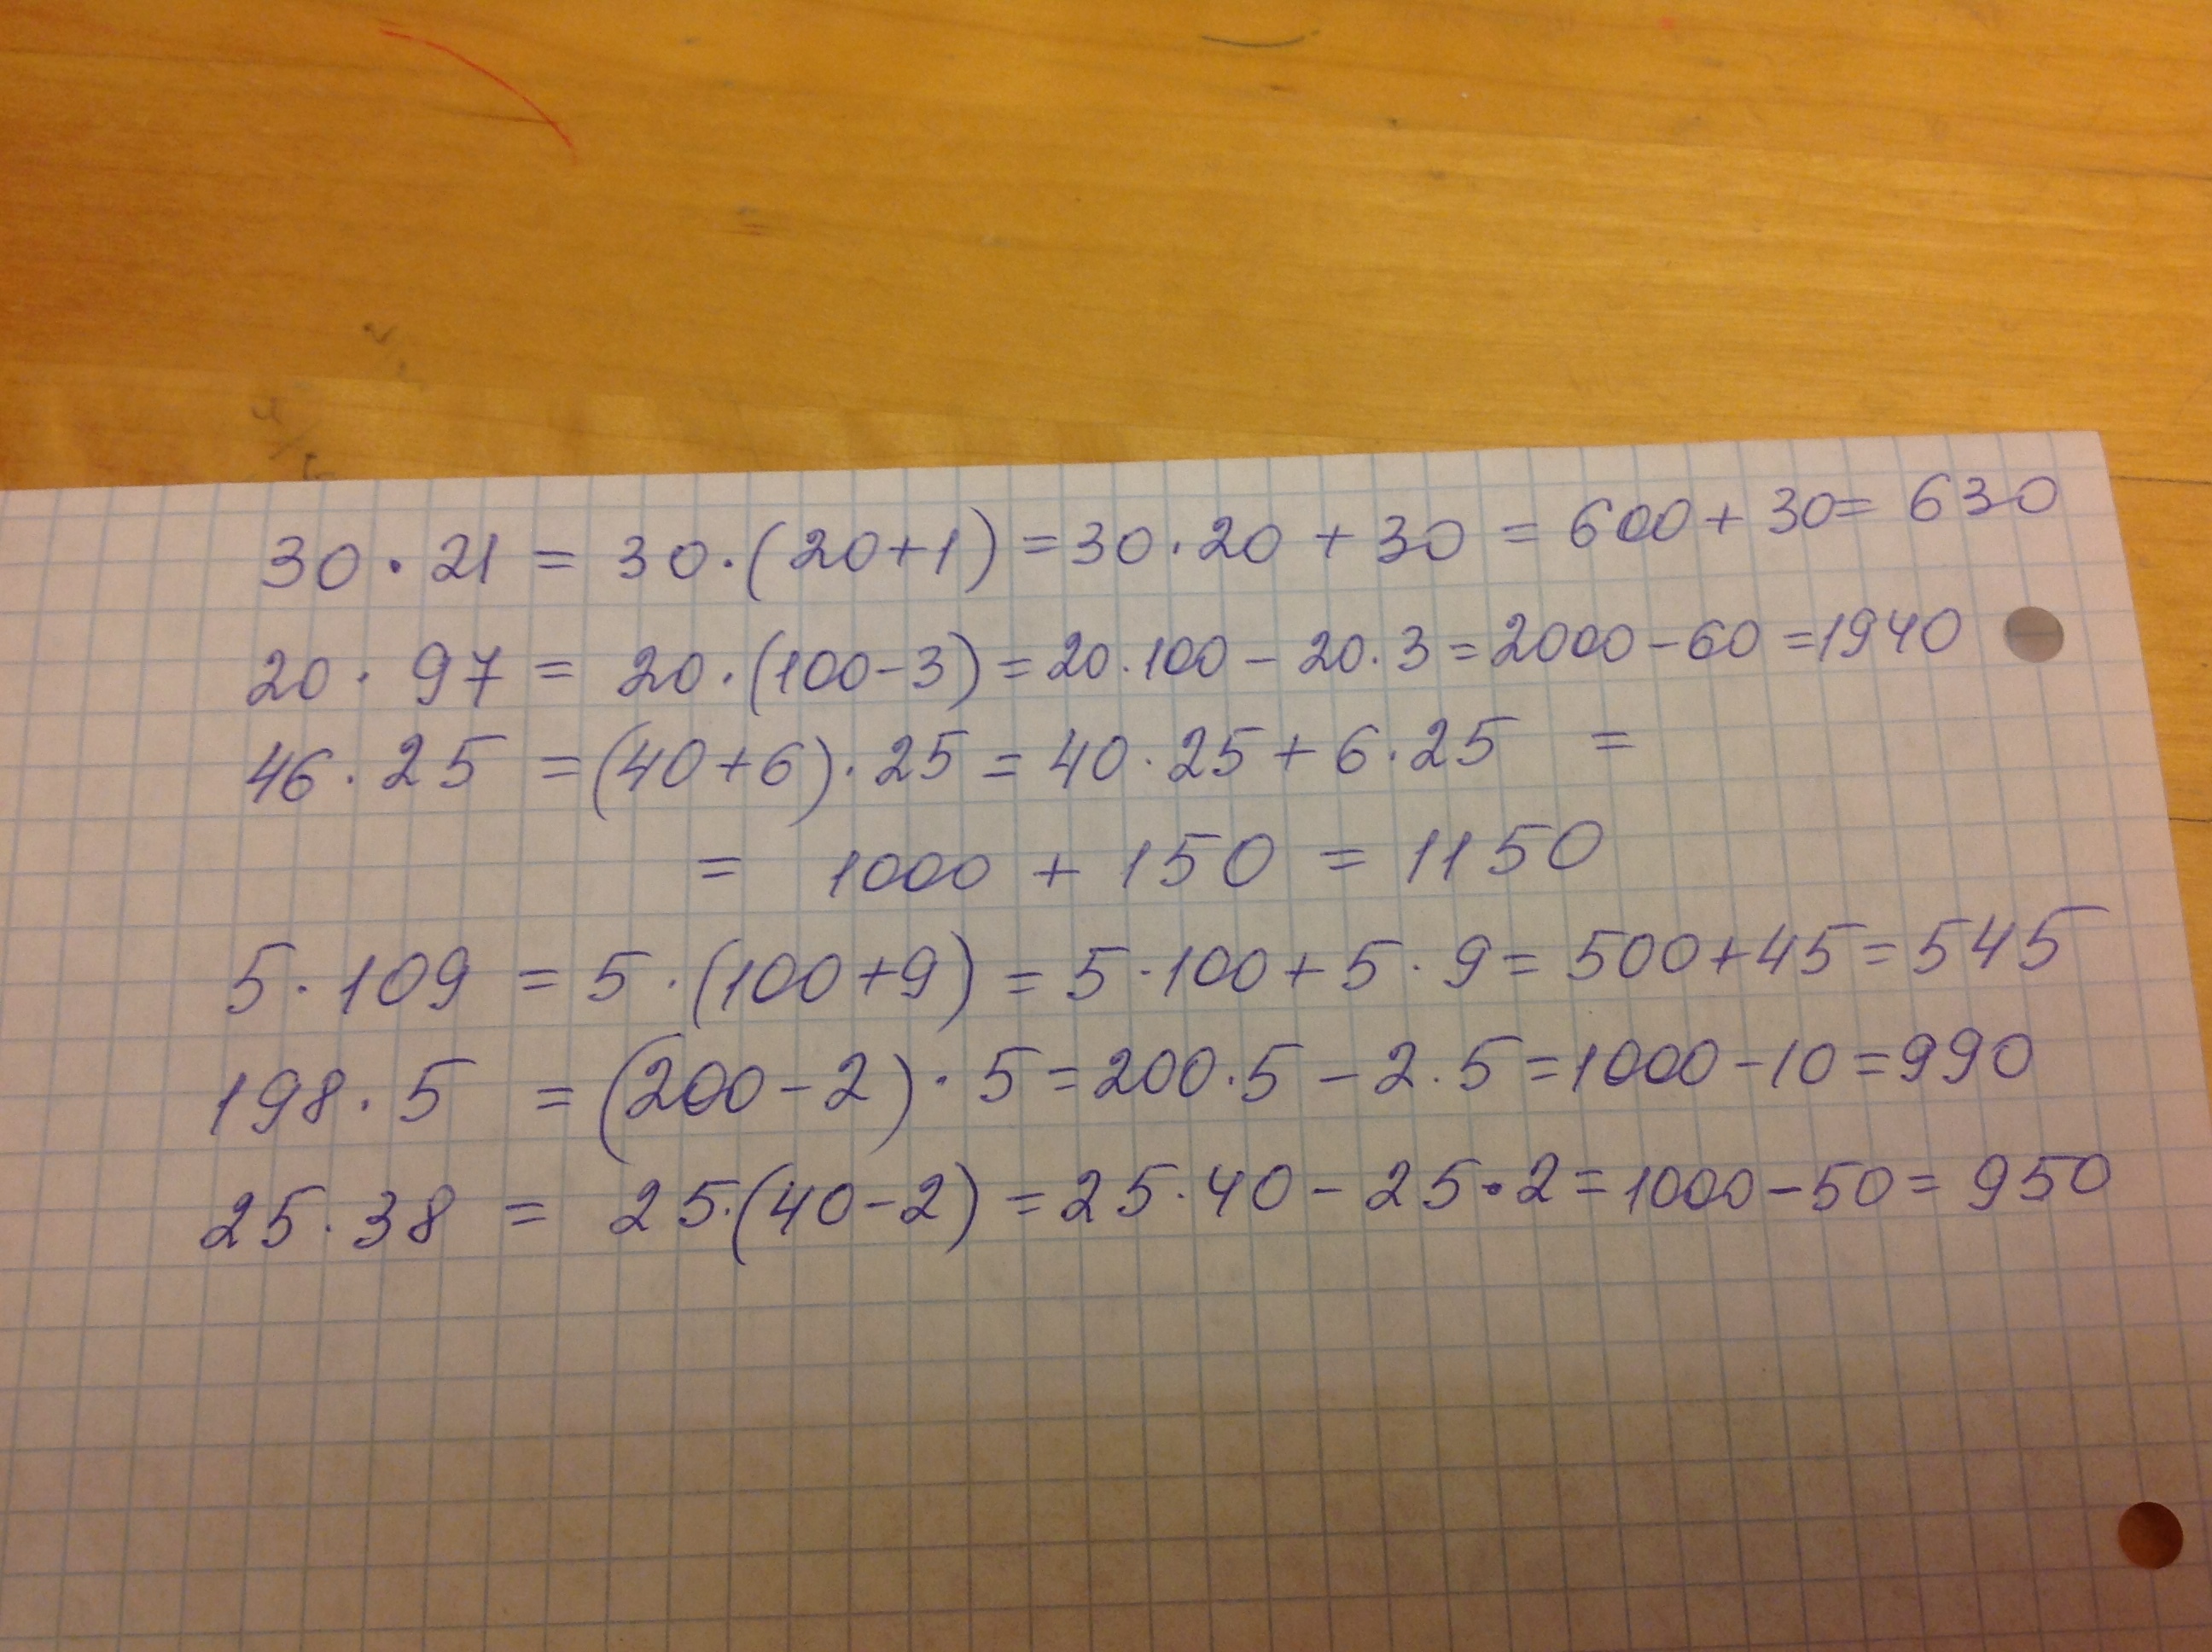 30 · 21 = 30 · (20+1) = 30 · 20 + 30 = 600 + 30 = 630
20 · 97 = 20 · (100-3) = 20 · 100 - 20 · 3 = 2000 - 60 = 1940
46 · 25 = (40+6) · 25 = 40 · 25 + 6 · 25 =
= 1000 + 150 = 1150
5 · 109 = 5 · (100+9) = 5 · 100 + 5 · 9 = 500 + 45 = 545
198 · 5 = (200-2) · 5 = 200 · 5 - 2 · 5 = 1000 - 10 = 990
25 · 38 = 25 · (40-2) = 25 · 40 - 25 · 2 = 1000 - 50 = 950